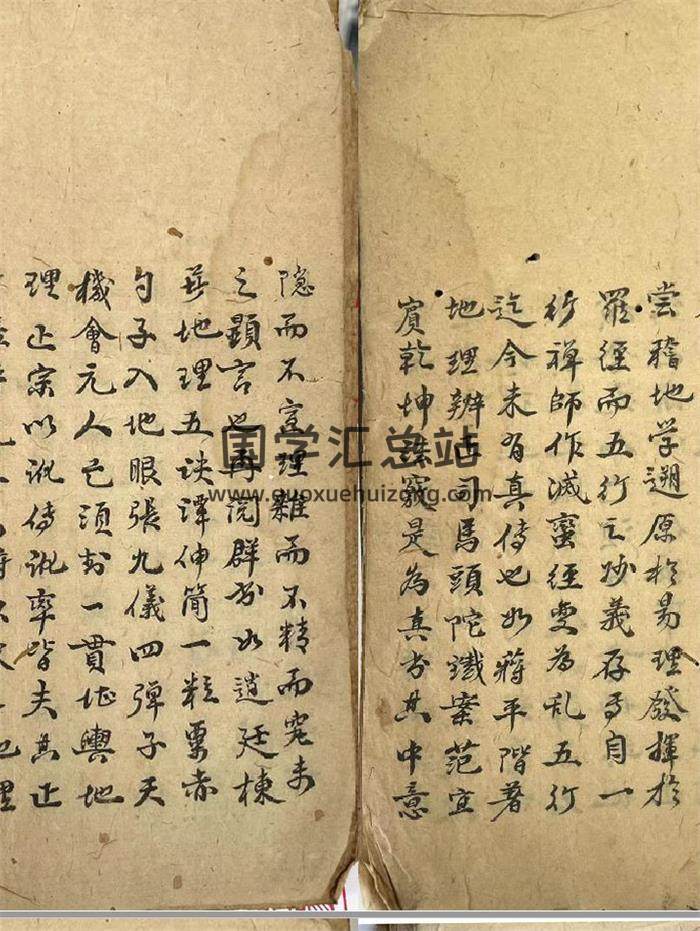 尝稽地学遡原於易理發揮於
羅经而五行之妙義存焉自一
行禅師作滅蠻经变为乱五行
迄今未有真傳也如蔣平階著
地理辨古司馬頭陀鐵案范宜
賓乾坤窽是為真书其中意
隐而不宣理雜而不精而究未
之顕言也再阅群书如逍廷棟
地理五诀譚伸简一粒粟赤
勺子入地眼張九儀四弹子天
機會元人己須一貫堪輿地
理正宗以訛傳訛率皆失其正
国学汇总站
www.guoxuehuizong.com